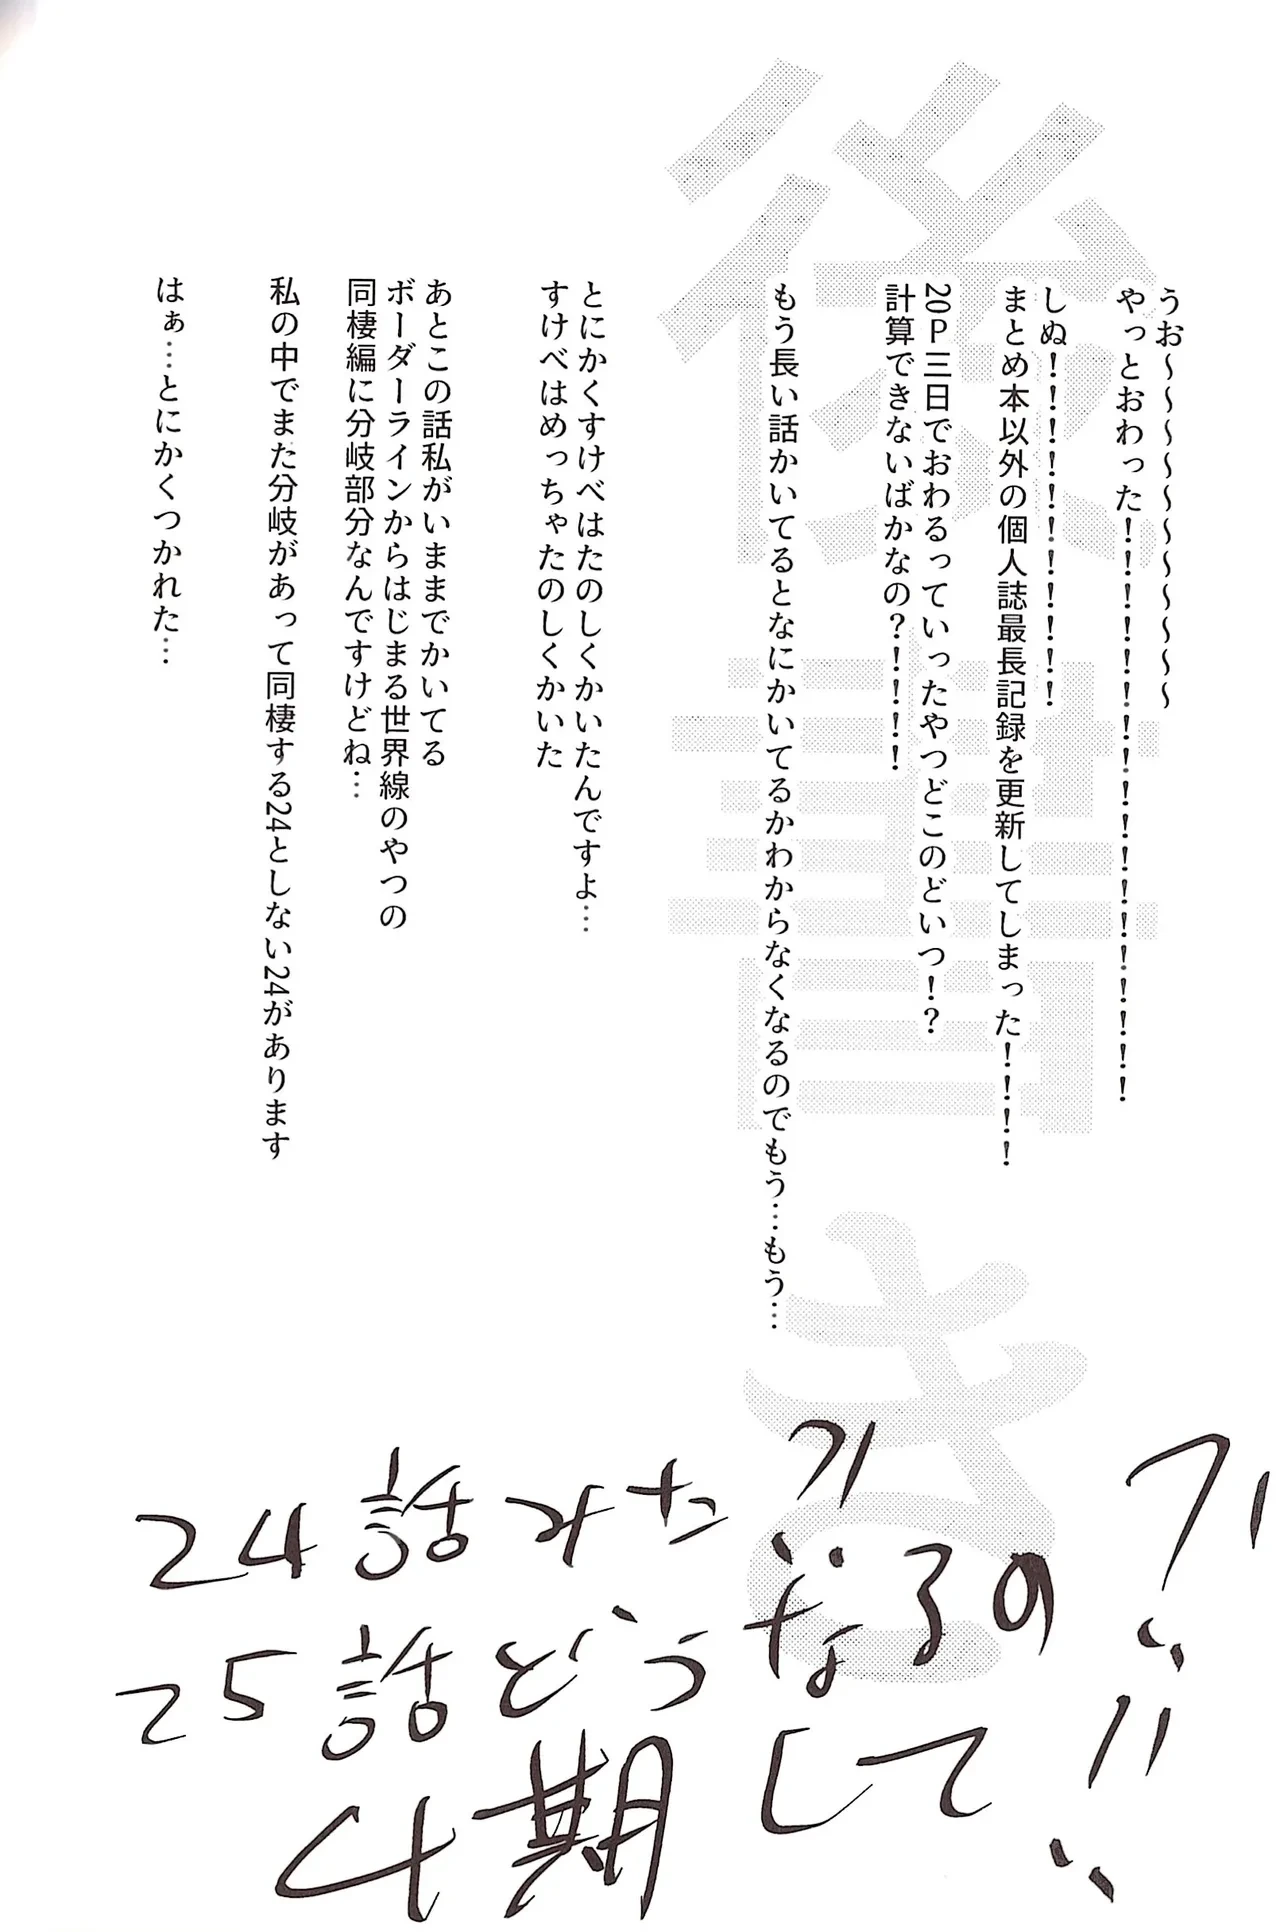 後書き
うお～～～～～～～～～～～
やっとおわった！！！！！！！！！！！！！！！！！！
しぬ！！！！！！！！！！！
まとめ本以外の個人誌最長記録を更新してしまった！！！！
20P三日でおわるっていったやつどこのどいつ！？
計算できないばかなの？！！！！
もう長い話かいてるとなにかいてるかわからなくなるのでもう…もう…
とにかくすけべはたのしくかいたんですよ…
すけべはめっちゃたのしくかいた
あとこの話私がいままでかいてる
ボーダーラインからはじまる世界線のやつの
同棲編に分岐部分なんですけどね…
私の中でまた分岐があって同棲する24としない24があります
はぁ…とにかくつかれた…
24話みた？！
25話どうなるの？！
4期して！！